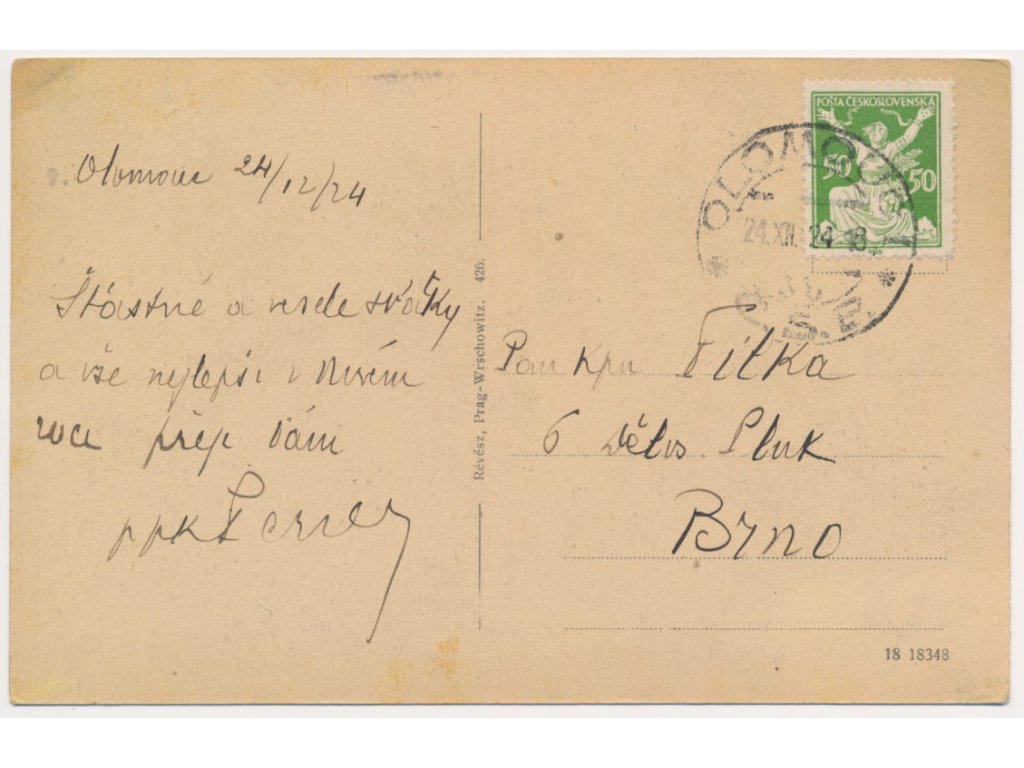 Olomouc 24/12/24
Šťastné a veselé svátky
a vše nejlepší v Novém
roce přeje Vám
ppk
Révész, Prag-Wrschowitz. 426.
POŠTA ČESKOSLOVENSKÁ
50 50
OLOMOUC 1
24.XII. 24 18
* *
Pan kpn Filka
6 děl. Pluk
Brno
18 18348